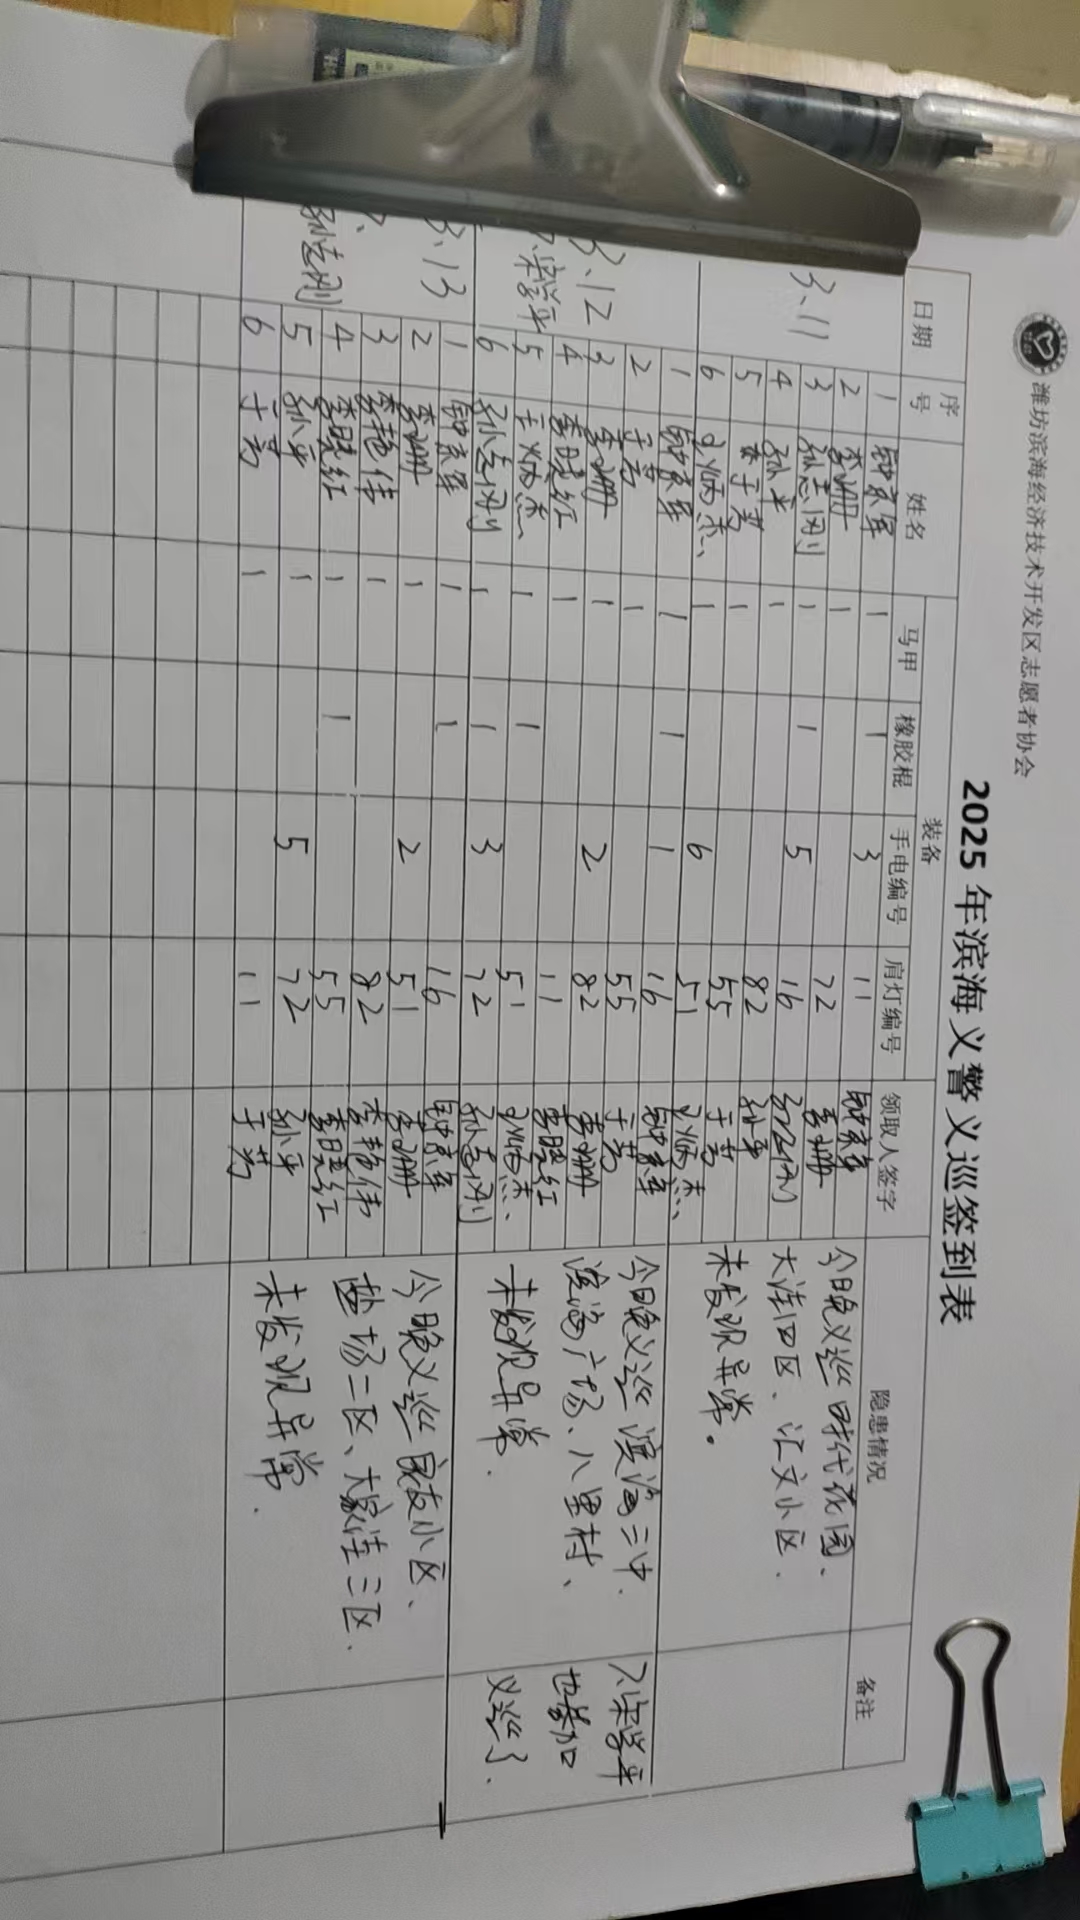 潍坊滨海经济技术开发区志愿者协会
2025 年滨海义警义巡签到表
日期 序号 姓名 装备 领取人签字 隐患情况 备注
马甲 橡胶棍 手电编号 肩灯编号
3.11
1 钟京军 1 1 3 11 钟京军
2 李珊 1 72 李珊
3 孙志刚 1 1 5 16
4 孙平 1 82 孙平
5 于芳 1 55 于芳
6 王炳杰 1 6 51 王炳杰
今日晚义巡时代花园、
大洼四区、汇文小区.
未发现异常。
3.12
梁学平
1 钟京军 1 1 1 16 钟京军
2 于芳 1 55 于芳
3 李珊 1 2 82 李珊
4 李晓红 1 11 李晓红
5 王炳杰 1 1 51 王炳杰
6 孙志刚 1 1 3 72 孙志刚
今日晚义巡滨海二中.
滨海广场、八里村、
未发现异常.
梁学平
也参加
义巡了.
3.13
孙志刚
1 钟京军 1 1 16 钟京军
2 李珊 1 2 51 李珊
3 李艳伟 1 82 李艳伟
4 李晓红 1 1 55 李晓红
5 孙平 1 5 72 孙平
6 于芳 1 11 于芳
今日晚义巡 小区、
盐场二区、大家洼三区.
未发现异常.